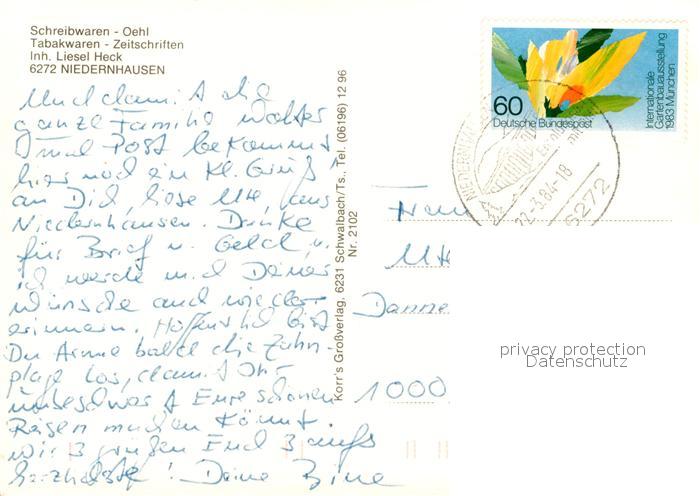 Schreibwaren - Oehl
Tabakwaren - Zeitschriften
Inh. Liesel Heck
6272 NIEDERNHAUSEN
Und damit die
ganze Familie
Post bekommt
hier noch ein kl. Gruß
an Dich, liebe Ute, aus
Niedernhausen. Danke
für Brief u. Geld u.
ich werde mich Deiner
Wünsche auch wieder
erinnern. Hoffentlich bist
Du Arme bald die Zahn-
plage los, damit Ihr
unbeschwert Eure schönen
Reisen machen könnt.
Wir 3 grüßen Euch 3 aufs
herzlichste! Deine Bine
Korr's Großverlag, 6231 Schwalbach/Ts., Tel. (06196) 12 96
Nr. 2102
60
Deutsche Bundespost
Internationale
Gartenbauausstellung
1983 München
22.-3.84-18
6272
Frau
Ute
Danne
1000
privacy protection
Datenschutz